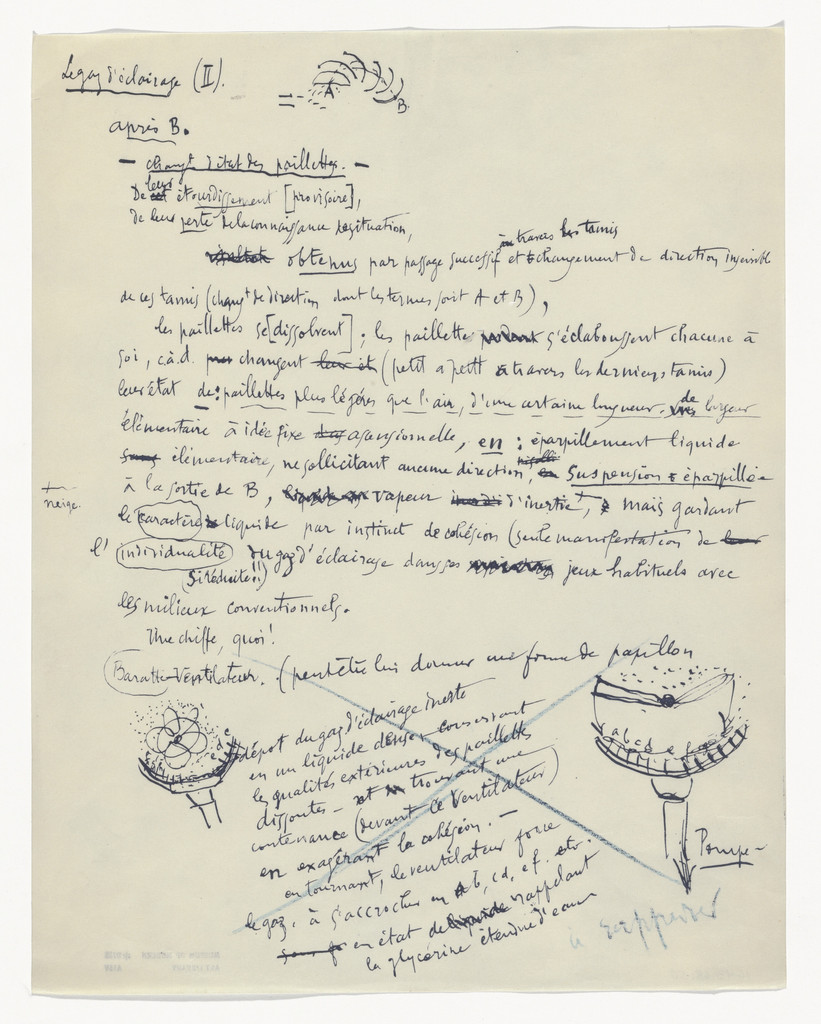 Le gaz d'éclairage (II).
A
B.
après B.
— changt d'état des paillettes. —
De leur étourdissement [provisoire],
de leur perte de la connaissance de situation,
à travers les tamis
obtenus par passage successif et changement de direction insensible
de ces tamis (changt de direction dont les termes sont A et B),
les paillettes se [dissolvent]; les paillettes s'éclaboussent chacune à
soi, c.à.d. changent (petit à petit à travers les derniers tamis)
leur état de: paillettes plus légères que l'air, d'une certaine longueur, de largeur
élémentaire à idée fixe ascensionnelle, en: éparpillement liquide
élémentaire, ne sollicitant aucune direction, suspension éparpillée
à la sortie de B, vapeur d'inertie, mais gardant
neige.
le caractère liquide par instinct de cohésion (seule manifestation de
l'individualité du gaz d'éclairage dans ses jeux habituels avec
(si réduite!!)
les milieux conventionnels.
Une chiffe, quoi!
Baratte Ventilateur. (peut être lui donner une forme de papillon
dépôt du gaz d'éclairage inerte
en un liquide dense conservant
les qualités extérieures des paillettes
dissoutes — et trouvant une
contenance (devant ce ventilateur)
en exagérant la cohésion. —
en tournant, le ventilateur force
le gaz à s'accrocher en a b, cd, ef. etc.
en état de liquide rappelant
la glycérine étendue d'eau
a b c d e f
Pompe —